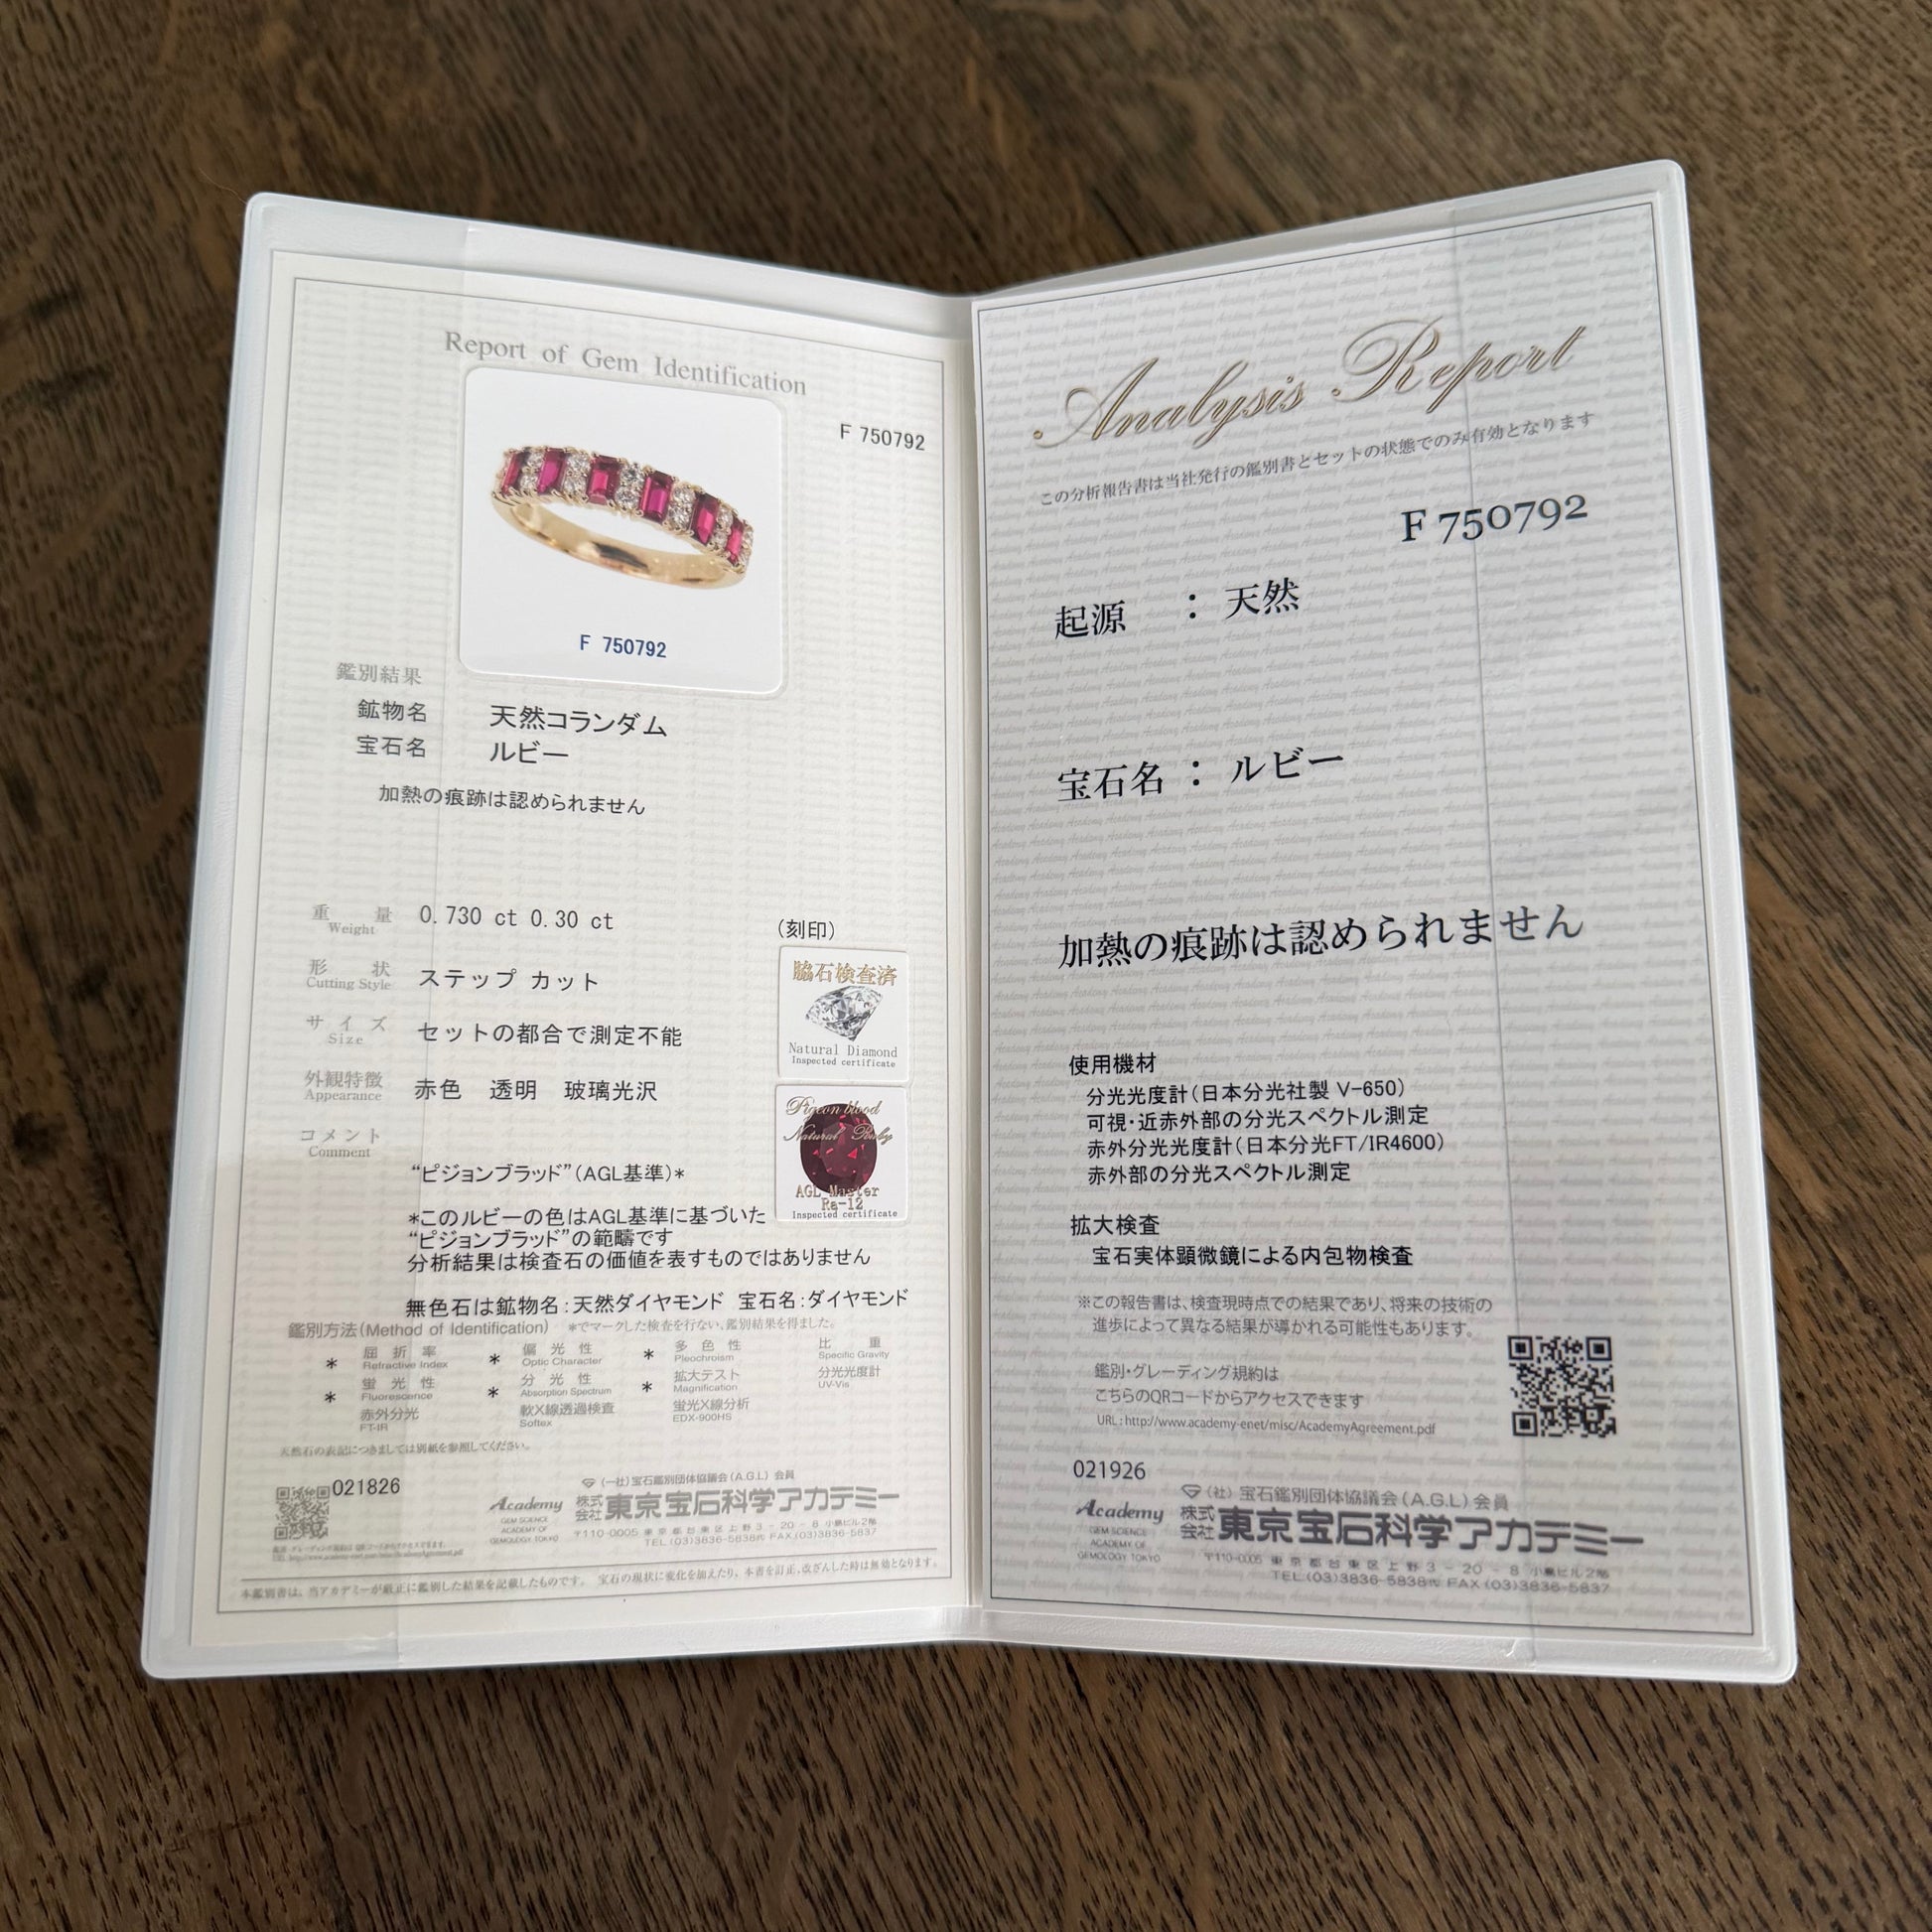 Report of Gem Identification
F 750792
F 750792
鑑別結果
鉱物名 天然コランダム
宝石名 ルビー
加熱の痕跡は認められません
重量 0.730 ct 0.30 ct
Weight
(刻印)
形状 ステップ カット
Cutting Style
サイズ セットの都合で測定不能
Size
外観特徴 赤色 透明 玻璃光沢
Appearance
コメント
Comment
脇石検査済
Natural Diamond
Inspected certificate
Pigeon blood
Natural Ruby
AGL Master
Ra-12
Inspected certificate
“ピジョンブラッド”(AGL基準)*
*このルビーの色はAGL基準に基づいた
“ピジョンブラッド”の範疇です
分析結果は検査石の価値を表すものではありません
無色石は鉱物名:天然ダイヤモンド 宝石名:ダイヤモンド
鑑別方法(Method of Identification) *でマークした検査を行ない、鑑別結果を得ました。
* 屈折率 * 偏光性 * 多色性 比重
Refractive Index Optic Character Pleochroism Specific Gravity
* 蛍光性 * 分光性 * 拡大テスト 分光光度計
Fluorescence Absorption Spectrum Magnification UV-Vis
赤外分光 軟X線透過検査 蛍光X線分析
FT-IR Softex EDX-900HS
天然石の表記につきましては別紙を参照してください。
021826
(一社)宝石鑑別団体協議会(A.G.L)会員
Academy 株式会社 東京宝石科学アカデミー
GEM SCIENCE
ACADEMY OF
GEMOLOGY TOKYO
〒110-0005 東京都台東区上野3-20-8 小島ビル2階
TEL(03)3836-5838代 FAX(03)3836-5837
本鑑別書は、当アカデミーが厳正に鑑別した結果を記載したものです。 宝石の現状に変化を加えたり、本書を訂正、改ざんした時は無効となります。
Analysis Report
この分析報告書は当社発行の鑑別書とセットの状態でのみ有効となります
F 750792
起源 : 天然
宝石名 : ルビー
加熱の痕跡は認められません
使用機材
分光光度計(日本分光社製 V-650)
可視・近赤外部の分光スペクトル測定
赤外分光光度計(日本分光FT/IR4600)
赤外部の分光スペクトル測定
拡大検査
宝石実体顕微鏡による内包物検査
※この報告書は、検査現時点での結果であり、将来の技術の
進歩によって異なる結果が導かれる可能性もあります。
鑑別・グレーディング規約は
こちらのQRコードからアクセスできます
URL:http://www.academy-enet/misc/AcademyAgreement.pdf
021926
(社)宝石鑑別団体協議会(A.G.L)会員
Academy 株式会社 東京宝石科学アカデミー
GEM SCIENCE
ACADEMY OF
GEMOLOGY TOKYO
〒110-0005 東京都台東区上野3-20-8 小島ビル2階
TEL(03)3836-5838代 FAX(03)3836-5837